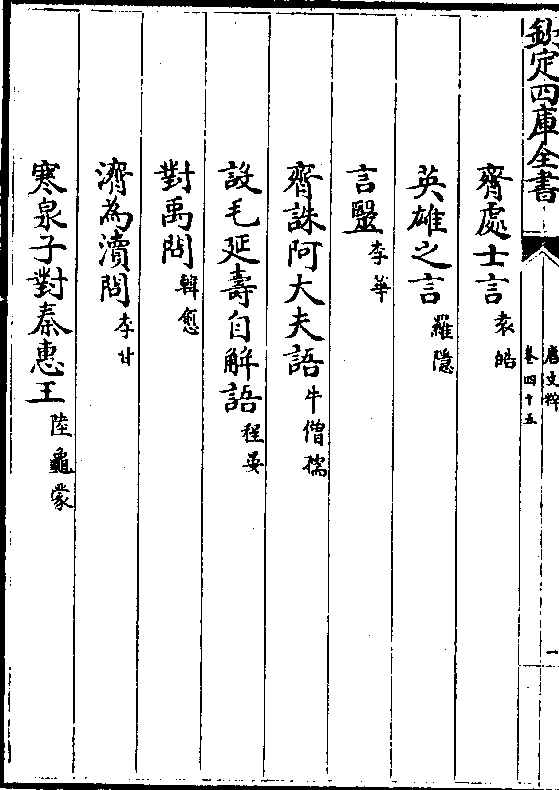 欽定四庫全書
唐文粹
卷四十五
一
齊處士言 袁皓
英雄之言 羅隱
言毉 李華
齊誅阿大夫語 牛僧孺
設毛延壽自解語 程晏
對禹問 韓愈
濟為瀆問 李甘
寒泉子對秦惠王 陸龜蒙